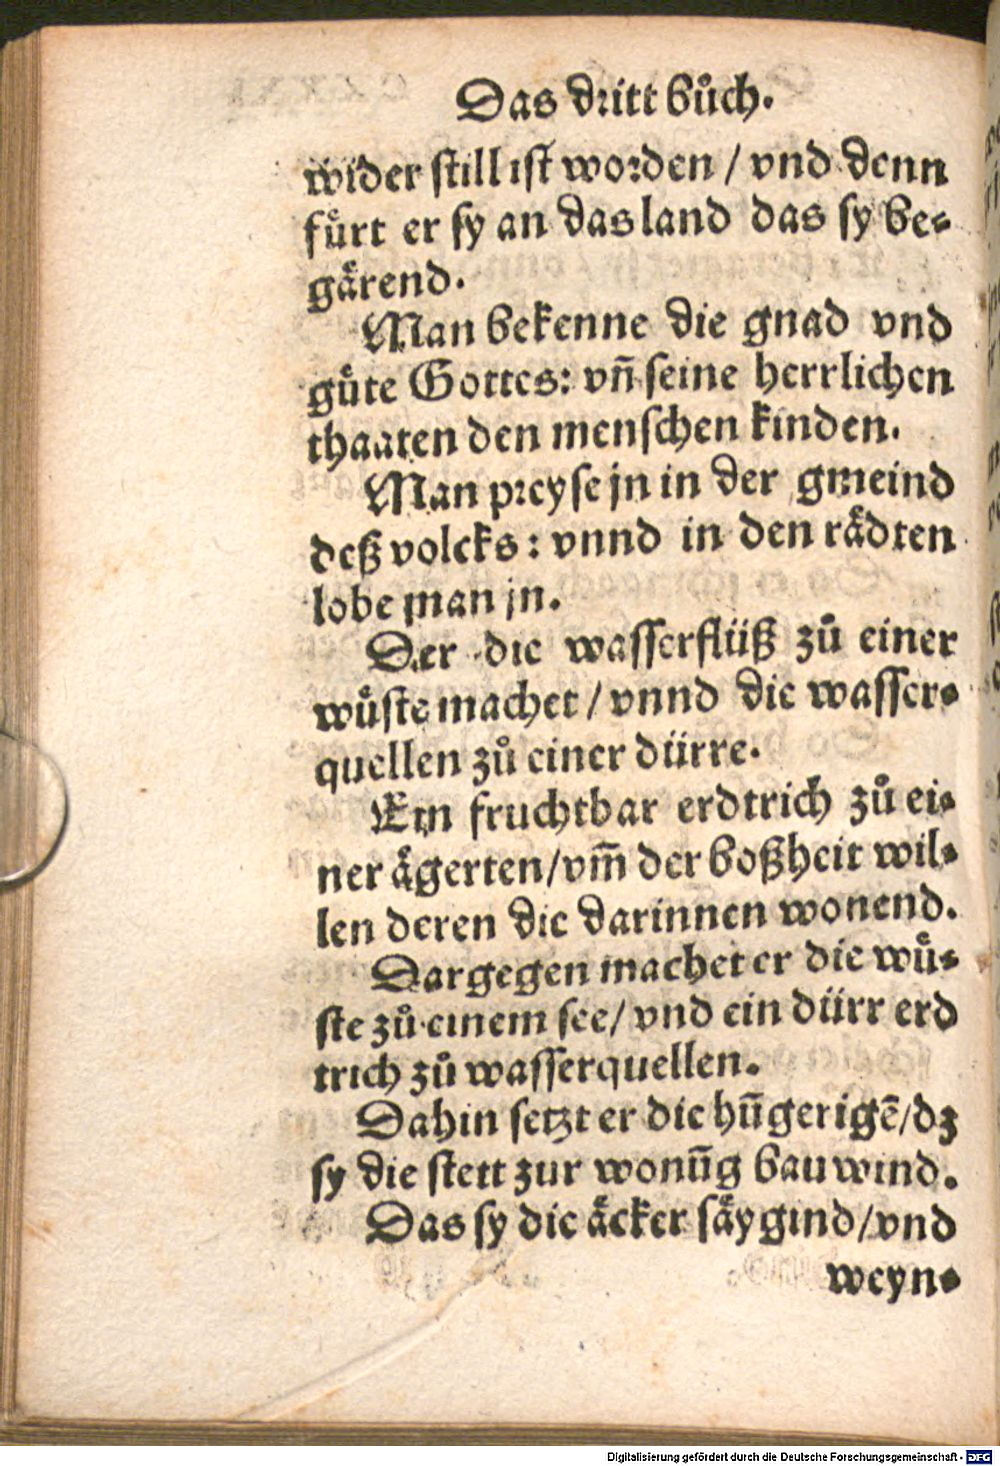 Das dritt bůch.
wider still ist worden / vnd denn
fůrt er sy an das land das sy be⸗
gaͤrend.
Man bekenne die gnad vnd
guͤte Gottes: vñ seine herrlichen
thaaten den menschen kinden.
Man preyse jn in der gmeind
deß volcks: vnnd in den raͤdten
lobe man jn.
Der die wasserflüß zů einer
wuͤste machet / vnnd die wasser⸗
quellen zů einer dürre.
Ein fruchtbar erdtrich zů ei⸗
ner aͤgerten/vm̃ der boßheit wil⸗
len deren die darinnen wonend.
Dargegen machet er die wuͤ⸗
ste zů einem see/ vnd ein dürr erd
trich zů wasserquellen.
Dahin setzt er die hũgerigẽ/dz
sy die stett zur wonũg bauwind.
Das sy die aͤcker saͤygind/vnd
weyn⸗
Digitalisierung gefördert durch die Deutsche Forschungsgemeinschaft - DFG